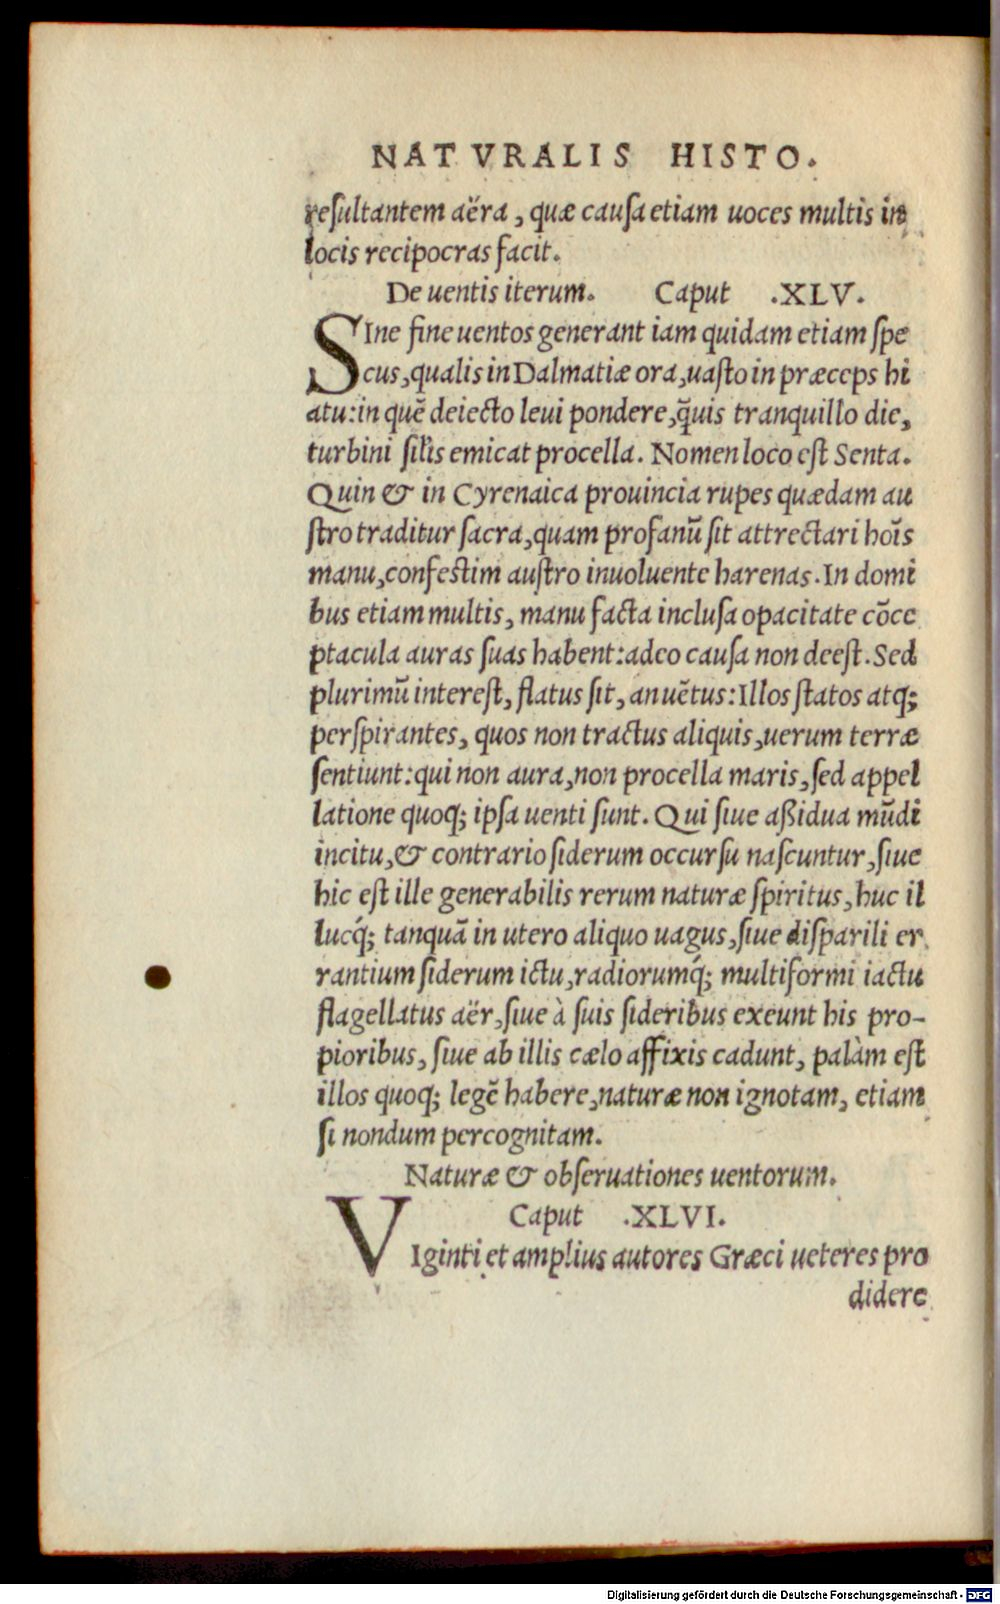 NATVRALIS HISTO.
resultantem aëra, quæ causa etiam uoces multis in
locis recipocras facit.
De uentis iterum. Caput .XLV.
SIne fine uentos generant iam quidam etiam spe
cus, qualis in Dalmatiæ ora, uasto in præceps hi
atu: in quē deiecto leui pondere, q̄uis tranquillo die,
turbini silis emicat procella. Nomen loco est Senta.
Quin & in Cyrenaica prouincia rupes quædam au
stro traditur sacra, quam profanū sit attrectari hoīs
manu, confestim austro inuoluente harenas. In domi
bus etiam multis, manu facta inclusa opacitate cōce
ptacula auras suas habent: adeo causa non deest. Sed
plurimū interest, flatus sit, an uētus: Illos statos atq;
perspirantes, quos non tractus aliquis, uerum terræ
sentiunt: qui non aura, non procella maris, sed appel
latione quoq; ipsa uenti sunt. Qui siue aßidua mūdi
incitu, & contrario siderum occursu nascuntur, siue
hic est ille generabilis rerum naturæ spiritus, huc il
lucq́; tanquā in utero aliquo uagus, siue disparili er
rantium siderum ictu, radiorumq́; multiformi iactu
flagellatus aër, siue à suis sideribus exeunt his pro-
pioribus, siue ab illis cælo affixis cadunt, palàm est
illos quoq; legē habere, naturæ non ignotam, etiam
si nondum percognitam.
Naturæ & obseruationes uentorum.
Caput .XLVI.
VIginti et amplius autores Græci ueteres pro
didere
Digitalisierung gefördert durch die Deutsche Forschungsgemeinschaft - DFG